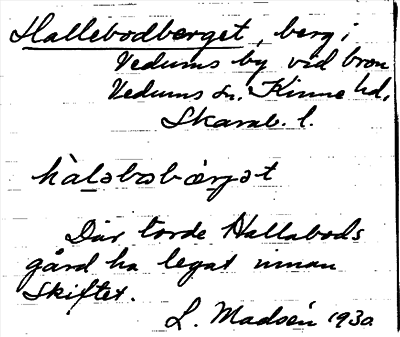 Hallebodberget, berg i
Vedums by vid bron
Vedums sn. Kinne hd,
Skarab. l.
hàlabobærjat
Där torde Hallabods
gård ha legat innan
skiftet.
L. Madsén 1930